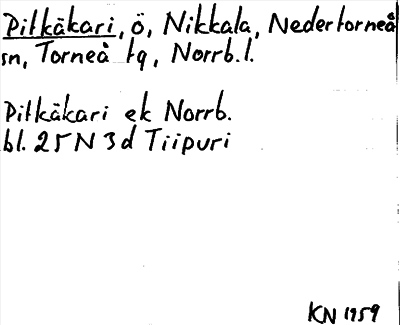 Pitkäkari, ö, Nikkala, Nedertorneå
sn, Torneå tg, Norrb.l.
Pitkäkari ek Norrb.
bl. 25 N 3d Tiipuri
KN 1959